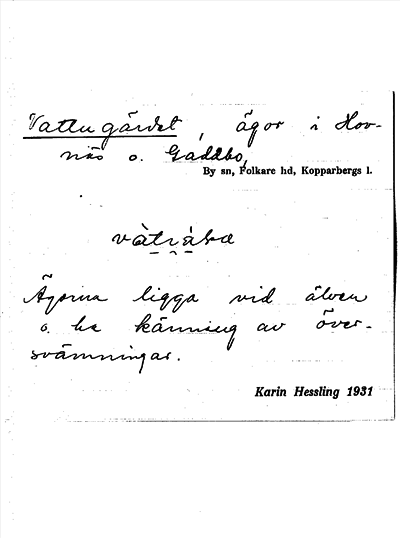 Vattugärdet, ägor i Hov-
näs o. Gaddbo,
By sn, Folkare hd, Kopparbergs l.
Ägorna ligga vid älven
o. ha känning av över-
svämningar.
Karin Hessling 1931